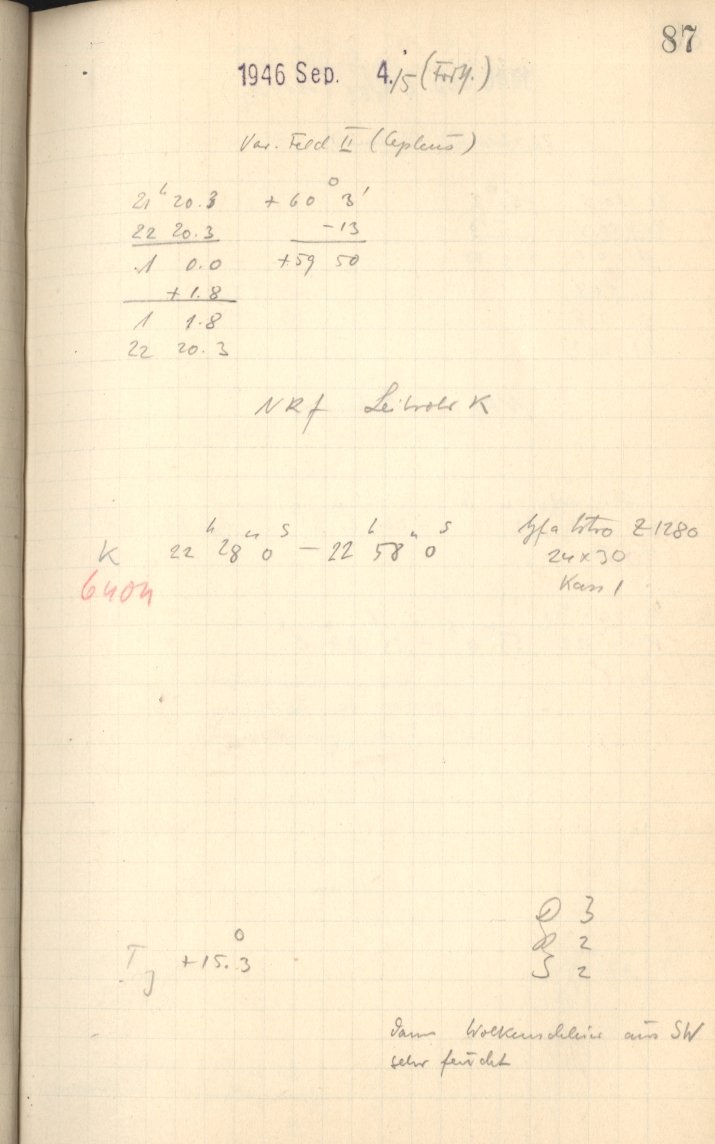 87
1946 Sep. 4./5 (Forts.)
Var. Feld II (Cepheus)
21ʰ 20.3 +60° 3'
22 20.3 -13
1 0.0 +59 50
+1.8
1 1.8
22 20.3
NRf Leitrohr K
K 22ʰ 28ᵐ 0ˢ – 22ʰ 58ᵐ 0ˢ Agfa Astro Z1280
6404 24x30
Kass 1
3
2
T +15.3° 2
Dann Wolkenschleier aus SW
sehr feucht